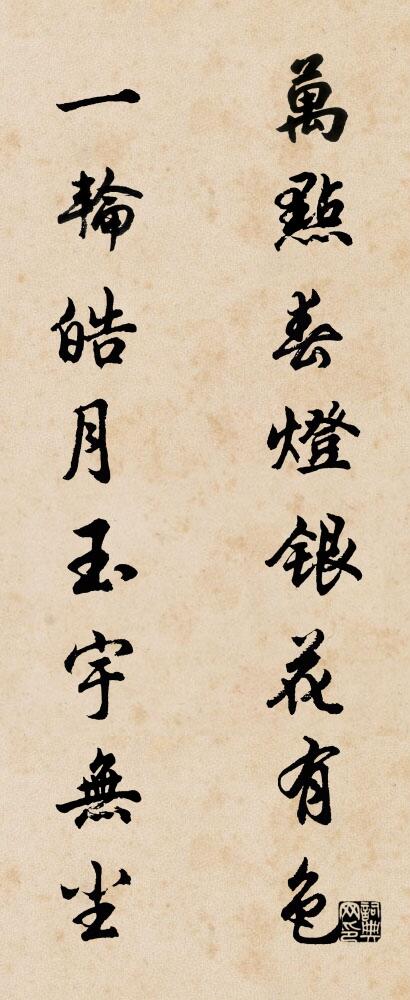 萬點春燈銀花有色
一輪皓月玉宇無尘
詞典網印